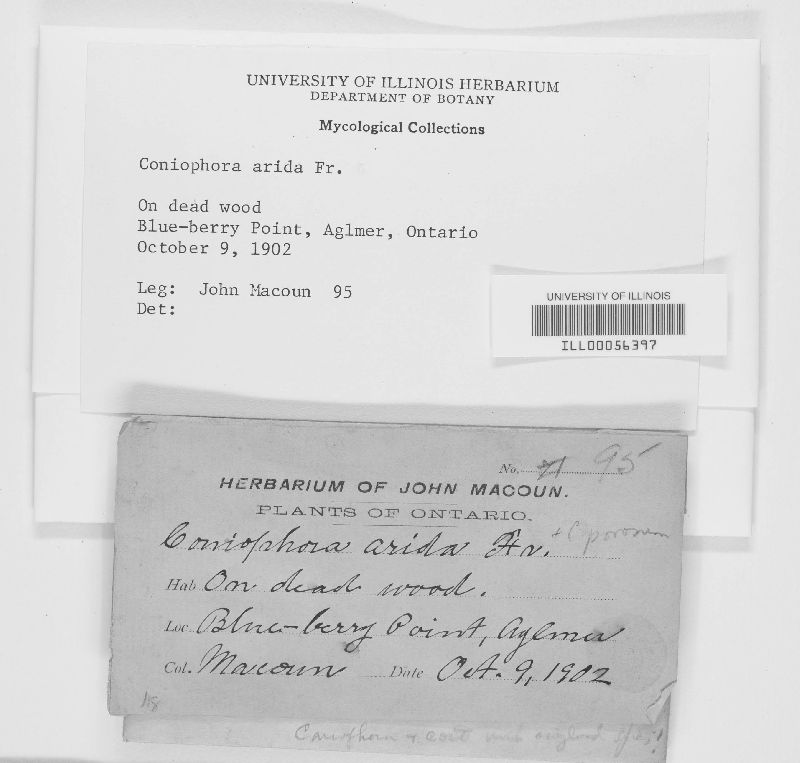 UNIVERSITY OF ILLINOIS HERBARIUM
DEPARTMENT OF BOTANY
Mycological Collections
Coniophora arida Fr.
On dead wood
Blue-berry Point, Aglmer, Ontario
October 9, 1902
Leg: John Macoun 95
Det:
UNIVERSITY OF ILLINOIS
ILL00056397
No. 71 95
HERBARIUM OF JOHN MACOUN.
PLANTS OF ONTARIO.
Coniophora arida Fr.
Hab. On dead wood.
Loc. Blue-berry Point, Aglmer
Col. Macoun Date Oct. 9, 1902
Coniophora